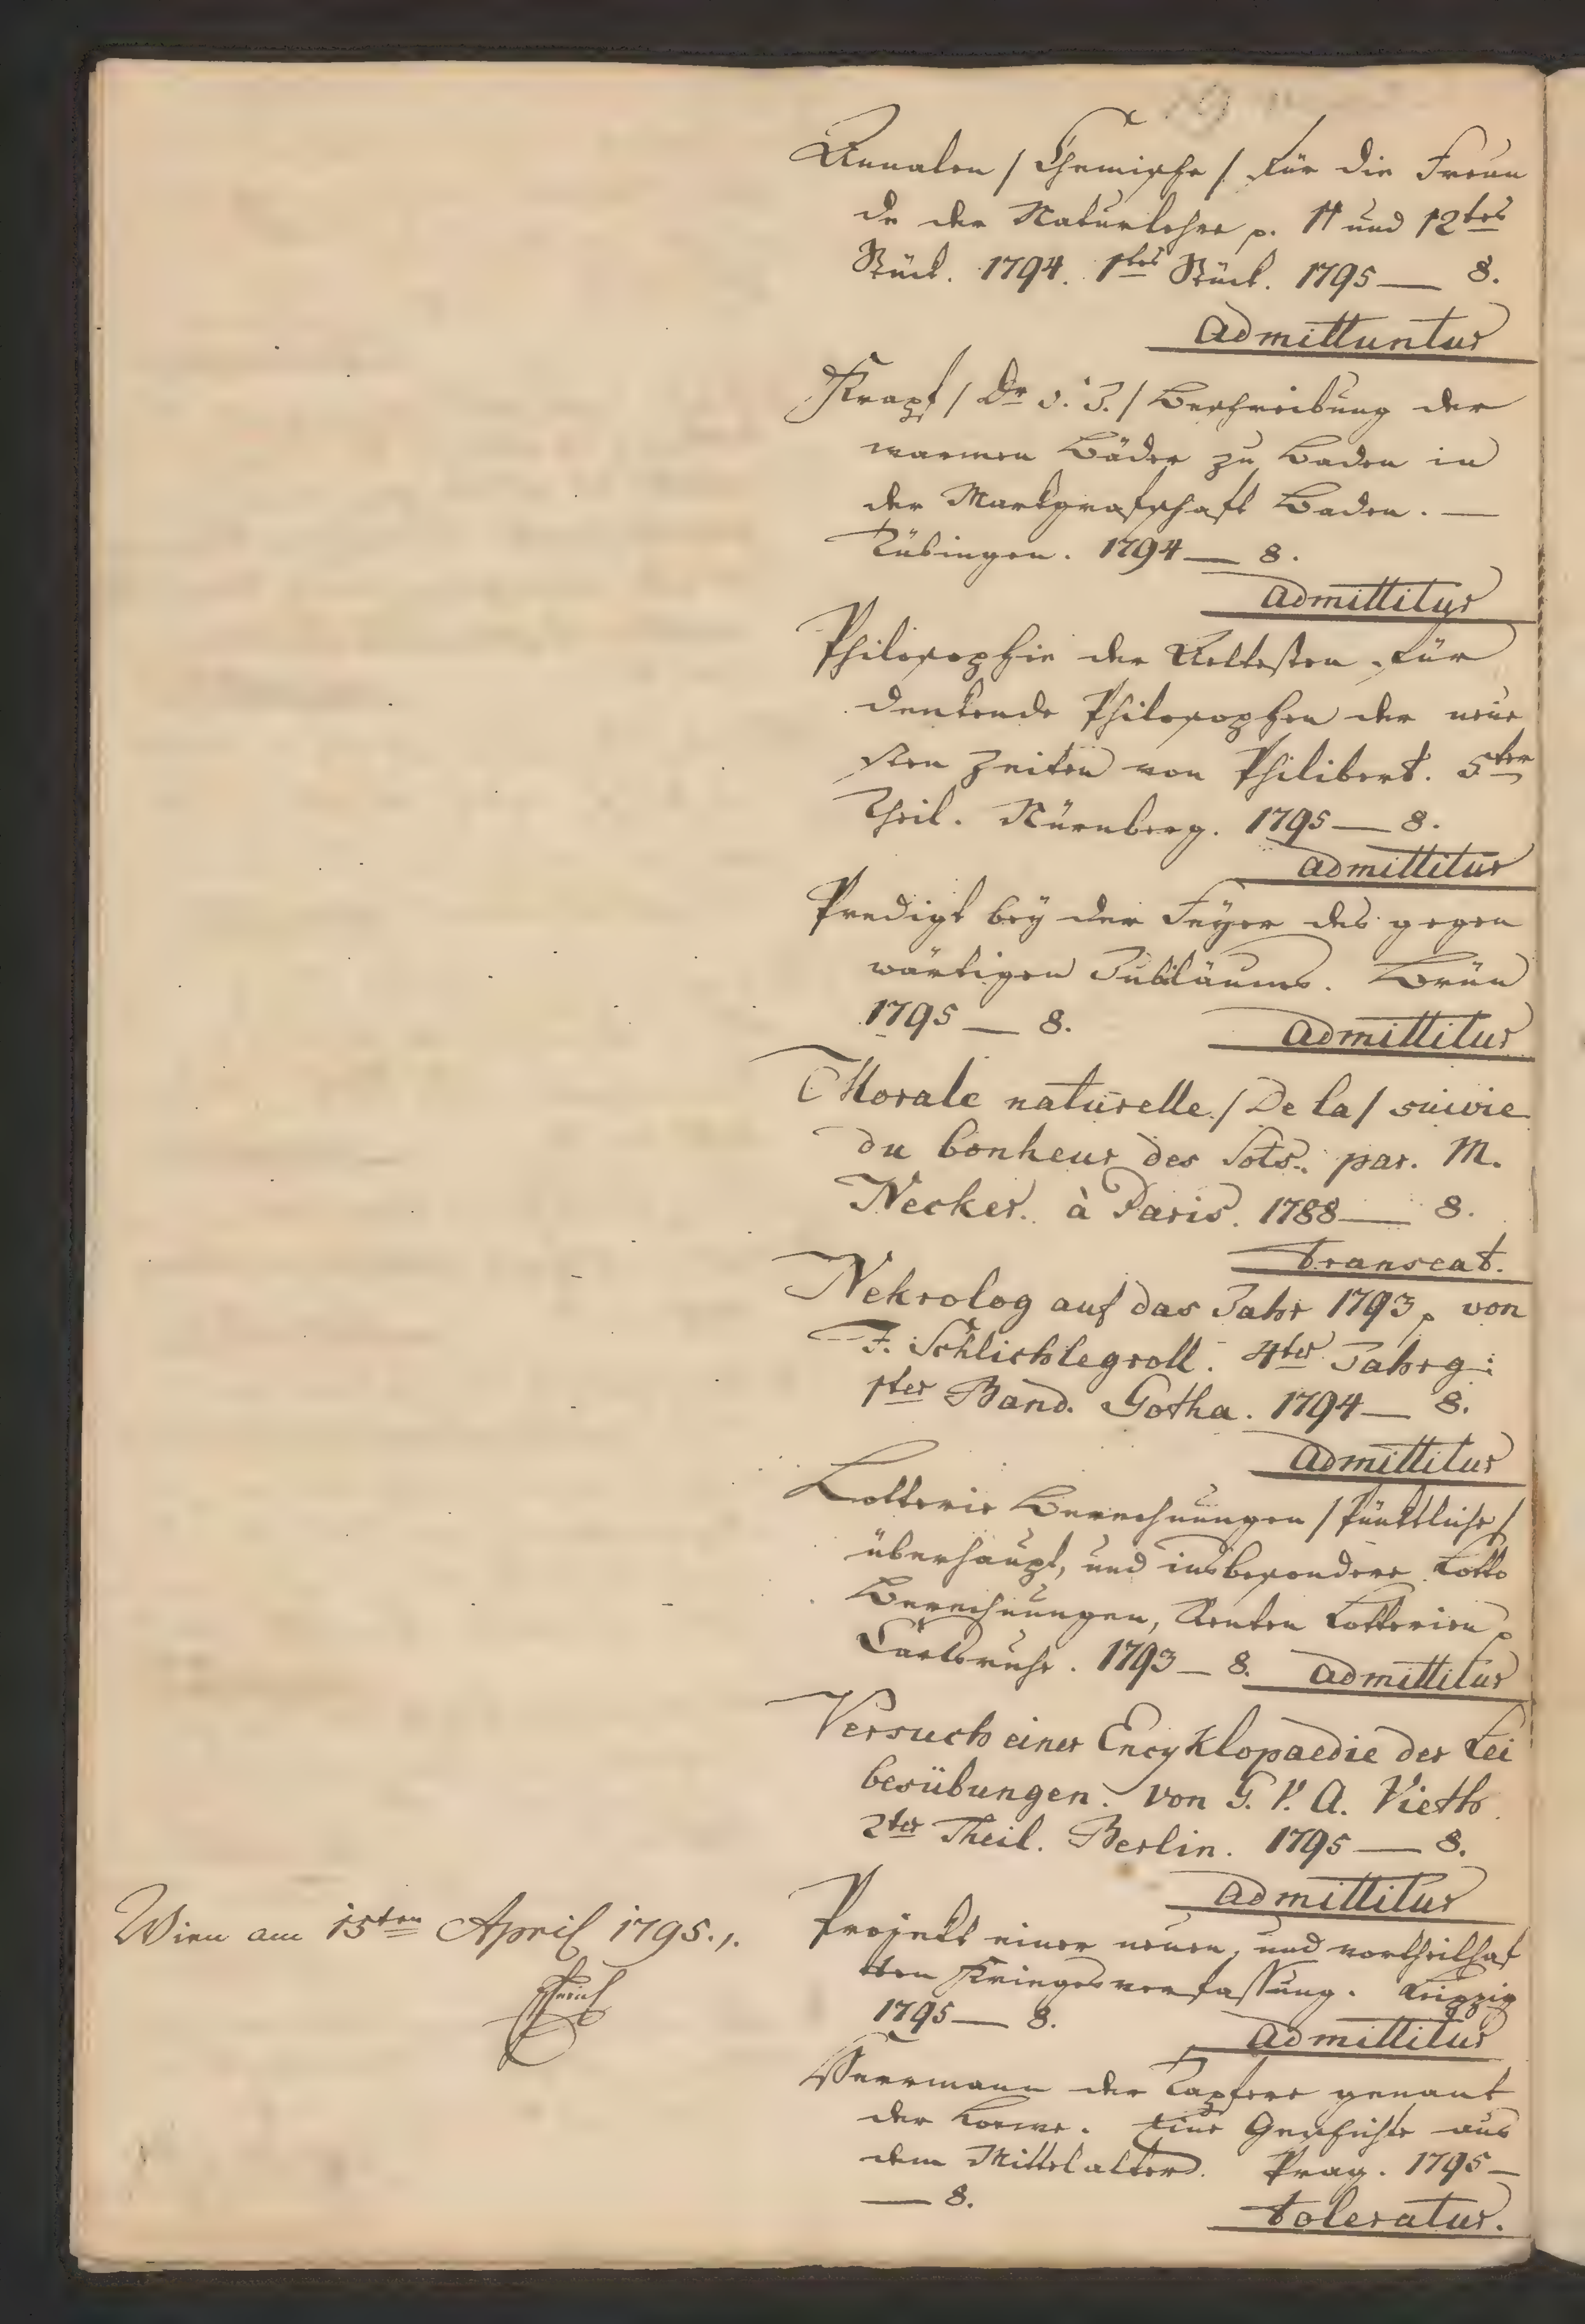 Annalen / Chemische / für die Freun
de der Naturlehre p. 11 und 12tes
Stück. 1794. 1tes Stück. 1795 — 8.
Admittuntur
Krapf / Dr v. J. / Beschreibung der
warmen Bäder zu Baden in
der Markgrafschaft Baden. —
Tübingen. 1794 — 8.
Admittitur
Philosophie der Aeltesten für
denkende Philosophen der neue
sten Zeiten von Philibert. 5ter
Theil. Nürnberg. 1795 — 8.
Admittitur
Predigt bey der Feyer des gegen
wärtigen Jubiläums. Brün
1795 — 8.
Admittitur
Morale naturelle / De la / suivie
du bonheur des Sots. par. M.
Necker. à Paris. 1788 — 8.
Transeat.
Nekrolog auf das Jahr 1793 p von
F. Schlichtegroll. 4ter Jahrg:
1ter Band. Gotha. 1794 — 8.
Admittitur
Lotterie Berechnungen / Pünktliche /
überhaupt, und insbesondere Lotto
Berechnungen, Renten Lotterien p
Carlsruhe. 1793 — 8. Admittitur
Versuch einer Encyklopaedie der Lei
besübungen. von G. V. A. Vieth
2ter Theil. Berlin. 1795 — 8.
Admittitur
Wien am 15ten April 1795.
Projekt einer neuen, und vortheilhaf
ten Kriegsverfassung. Leipzig
1795 — 8.
Admittitur
Herrmann der Tapfere genant
der Loewe. Eine Geschichte aus
dem Mittelalter. Prag. 1795 —
— 8.
Toleratur.